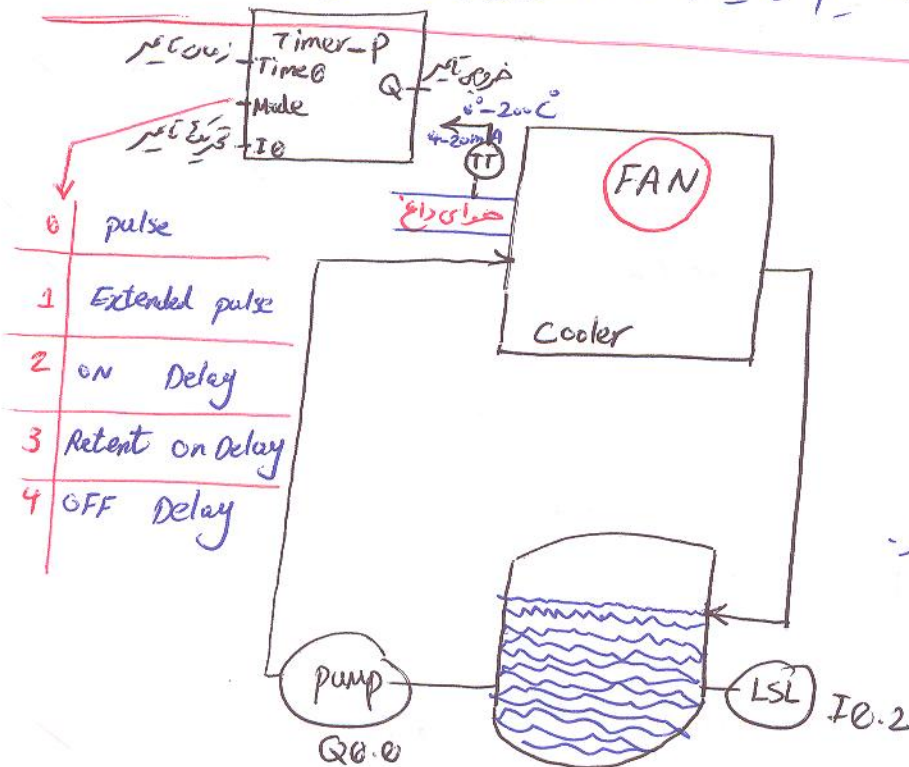 Timer_P
زمان تایمر
Time0
Q
خروجی تایمر
Mode
تحریک تایمر
I0
0°-200C°
4-20mA
TT
FAN
هوای داغ
Cooler
0 pulse
1 Extended pulse
2 ON Delay
3 Retent on Delay
4 OFF Delay
pump
Q0.0
LSL
I0.2